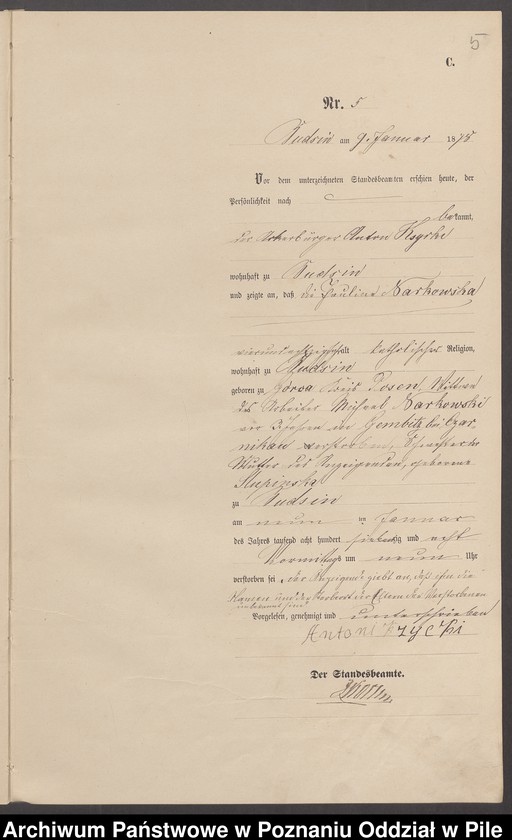 5
C.
Nr. 5
Budsin am 9. Januar 1878
Vor dem unterzeichneten Standesbeamten erschien heute, der
Persönlichkeit nach
bekannt,
der Ackerbürger Anton
wohnhaft zu Budsin
und zeigte an, daß die Pauline Narkowska
alt katholischer Religion,
wohnhaft zu Budsin
geboren zu Kreis Posen, Wittwe
des Arbeiter Michael Narkowski
vor Jahren in Gembitz bei Czar-
nikau verstorben, Schwester der
Mutter des Anzeigenden, geborene
Slupinska
zu Budsin
am neun ten Januar
des Jahres tausend acht hundert siebenzig und acht
Vormittags um neun Uhr
verstorben sei, der Anzeigende giebt an, daß ihm die
Namen und der Eltern der Verstorbenen
unbekannt sind
Vorgelesen, genehmigt und unterschrieben
Antoni
Der Standesbeamte.
Archiwum Państwowe w Poznaniu Oddział w Pile